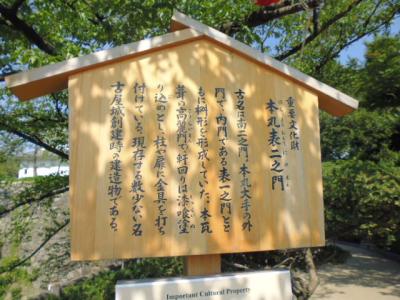 重要文化財
本丸表二之門
古名は南二之門、本丸大手の外
門で、内門である表一之門とと
もに桝形を形成していた。本瓦
葺の高麗門で、軒回りは漆喰塗
り込めとし、柱・扉に金具を打ち
付けている。現存する数少ない名
古屋城創建時の建造物である。
Important Cultural Property